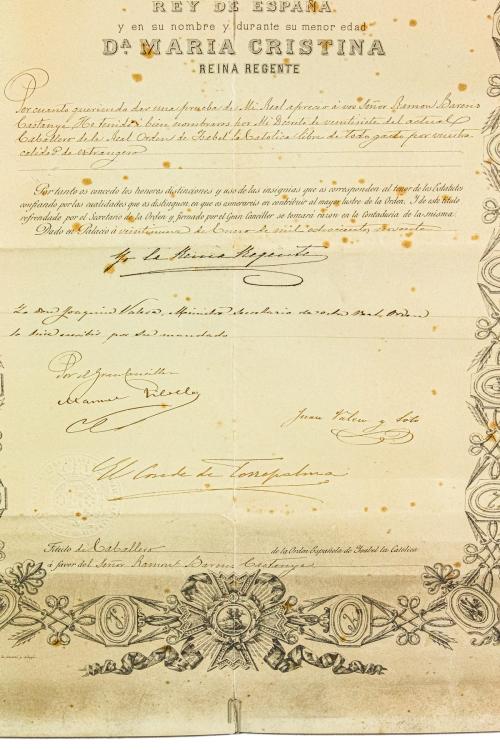 REY DE ESPAÑA
y en su nombre y durante su menor edad
Dª MARIA CRISTINA
REINA REGENTE
Por cuanto queriendo dar una prueba de Mi Real aprecio á vos Señor Ramon Bareno
Castanya He tenido á bien nombraros por Mi Decreto de veintisiete del actual
Caballero de la Real Orden de Isabel la Catolica libre de todo gasto por vuestra
calidad de extrangero
Por tanto os concedo los honores distinciones y uso de las insignias que os corresponden al tenor de los Estatutos
confiando por las cualidades que os distinguen en que os esmerareis en contribuir al mayor lustre de la Orden. Y de este titulo
refrendado por el Secretario de la Orden y firmado por el Gran Canciller se tomará razon en la Contaduria de la misma.
Dado en Palacio á veintinueve de Enero de mil ochocientos noventa
Yo la Reina Regente
Yo don Joaquin Valera, Ministro Secretario de esta Real Orden
lo hice escribir por su mandado
Por el Gran Canciller
Manuel
Juan Valera y Soto
El Conde de Torrepalma
Titulo de Caballero de la Orden Española de Ysabel la Catolica
á favor del Señor Ramon Castanya